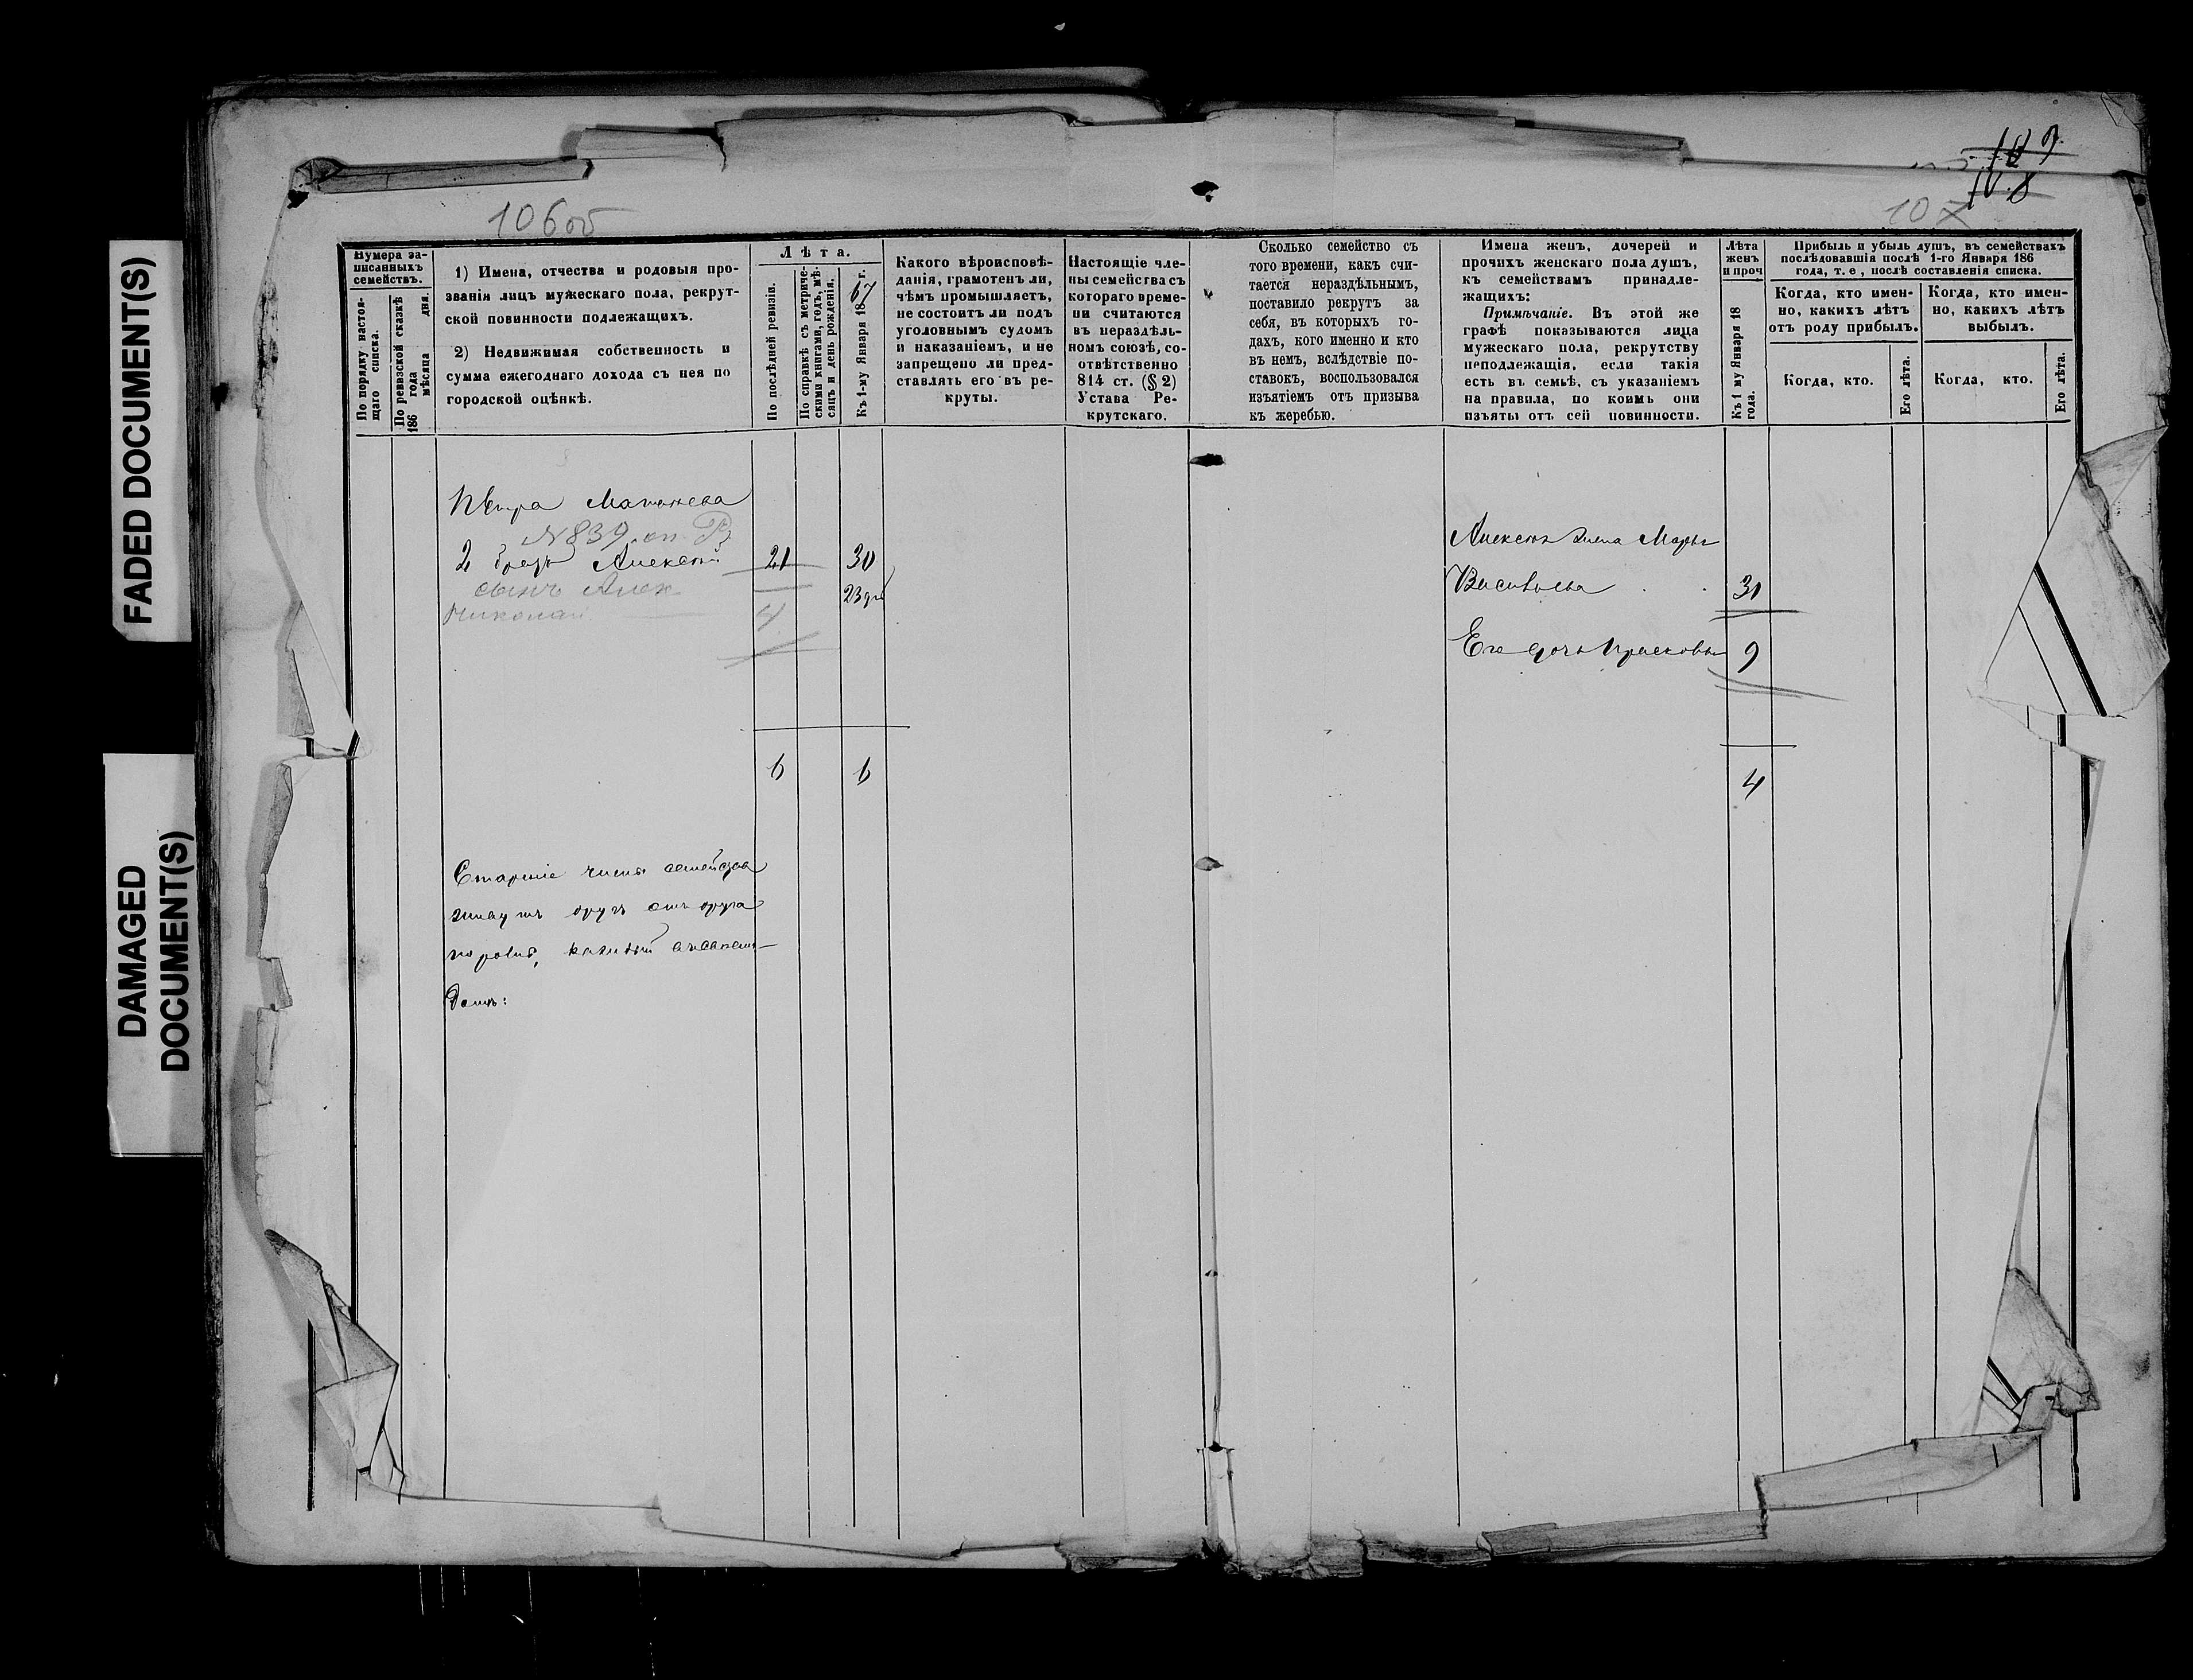 FADED DOCUMENT(S)
DAMAGED
DOCUMENT(S)
106об
109
108
10
Нумера за-
писанныхъ
семействъ.
По порядку настоя-
щаго списка.
По ревизской сказкѣ
186 года мѣсяца дня.
1) Имена, отчества и родовыя про-
званія лицъ мужескаго пола, рекрут-
ской повинности подлежащихъ.
2) Недвижимая собственность и
сумма ежегоднаго дохода съ нея по
городской оцѣнкѣ.
Лѣта.
По послѣдней ревизіи.
По справкѣ съ метриче-
скими книгами, годъ, мѣ-
сяцъ и день рожденія.
Къ 1-му Января 1867 г.
Какого вѣроисповѣ-
данія, грамотенъ ли,
чѣмъ промышляетъ,
не состоитъ ли подъ
уголовнымъ судомъ
и наказаніемъ, и не
запрещено ли пред-
ставлять его въ ре-
круты.
Настоящіе чле-
ны семейства съ
котораго време-
ни считаются
въ нераздѣль-
номъ союзѣ, со-
отвѣтственно
814 ст. (§ 2)
Устава Ре-
крутскаго.
Сколько семейство съ
того времени, какъ счи-
тается нераздѣльнымъ,
поставило рекрутъ за
себя, въ которыхъ го-
дахъ, кого именно и кто
въ немъ, вслѣдствіе по-
ставокъ, воспользовался
изъятіемъ отъ призыва
къ жеребью.
Имена женъ, дочерей и
прочихъ женскаго пола душъ,
къ семействамъ принадле-
жащихъ:
Примѣчаніе. Въ этой же
графѣ показываются лица
мужескаго пола, рекрутству
неподлежащія, если такія
есть въ семьѣ, съ указаніемъ
на правила, по коимъ они
изъяты отъ сей повинности.
Лѣта
женъ
и проч
Къ 1 му Января 18
года.
Прибыль и убыль душъ, въ семействахъ
послѣдовавшія послѣ 1-го Января 186
года, т. е, послѣ составленія списка.
Когда, кто имен-
но, какихъ лѣтъ
отъ роду прибылъ.
Когда, кто.
Его лѣта.
Когда, кто имен-
но, какихъ лѣтъ
выбылъ.
Когда, кто.
Его лѣта.
Петра
№839
2 братъ Алексѣй 21 30
сынъ Алек
Николай 4
6 6
Алексѣя жена Марья
Васильева 31
Его дочь Прасковья 9
4
Старшіе члены семейства
живутъ другъ отъ друга
домъ: